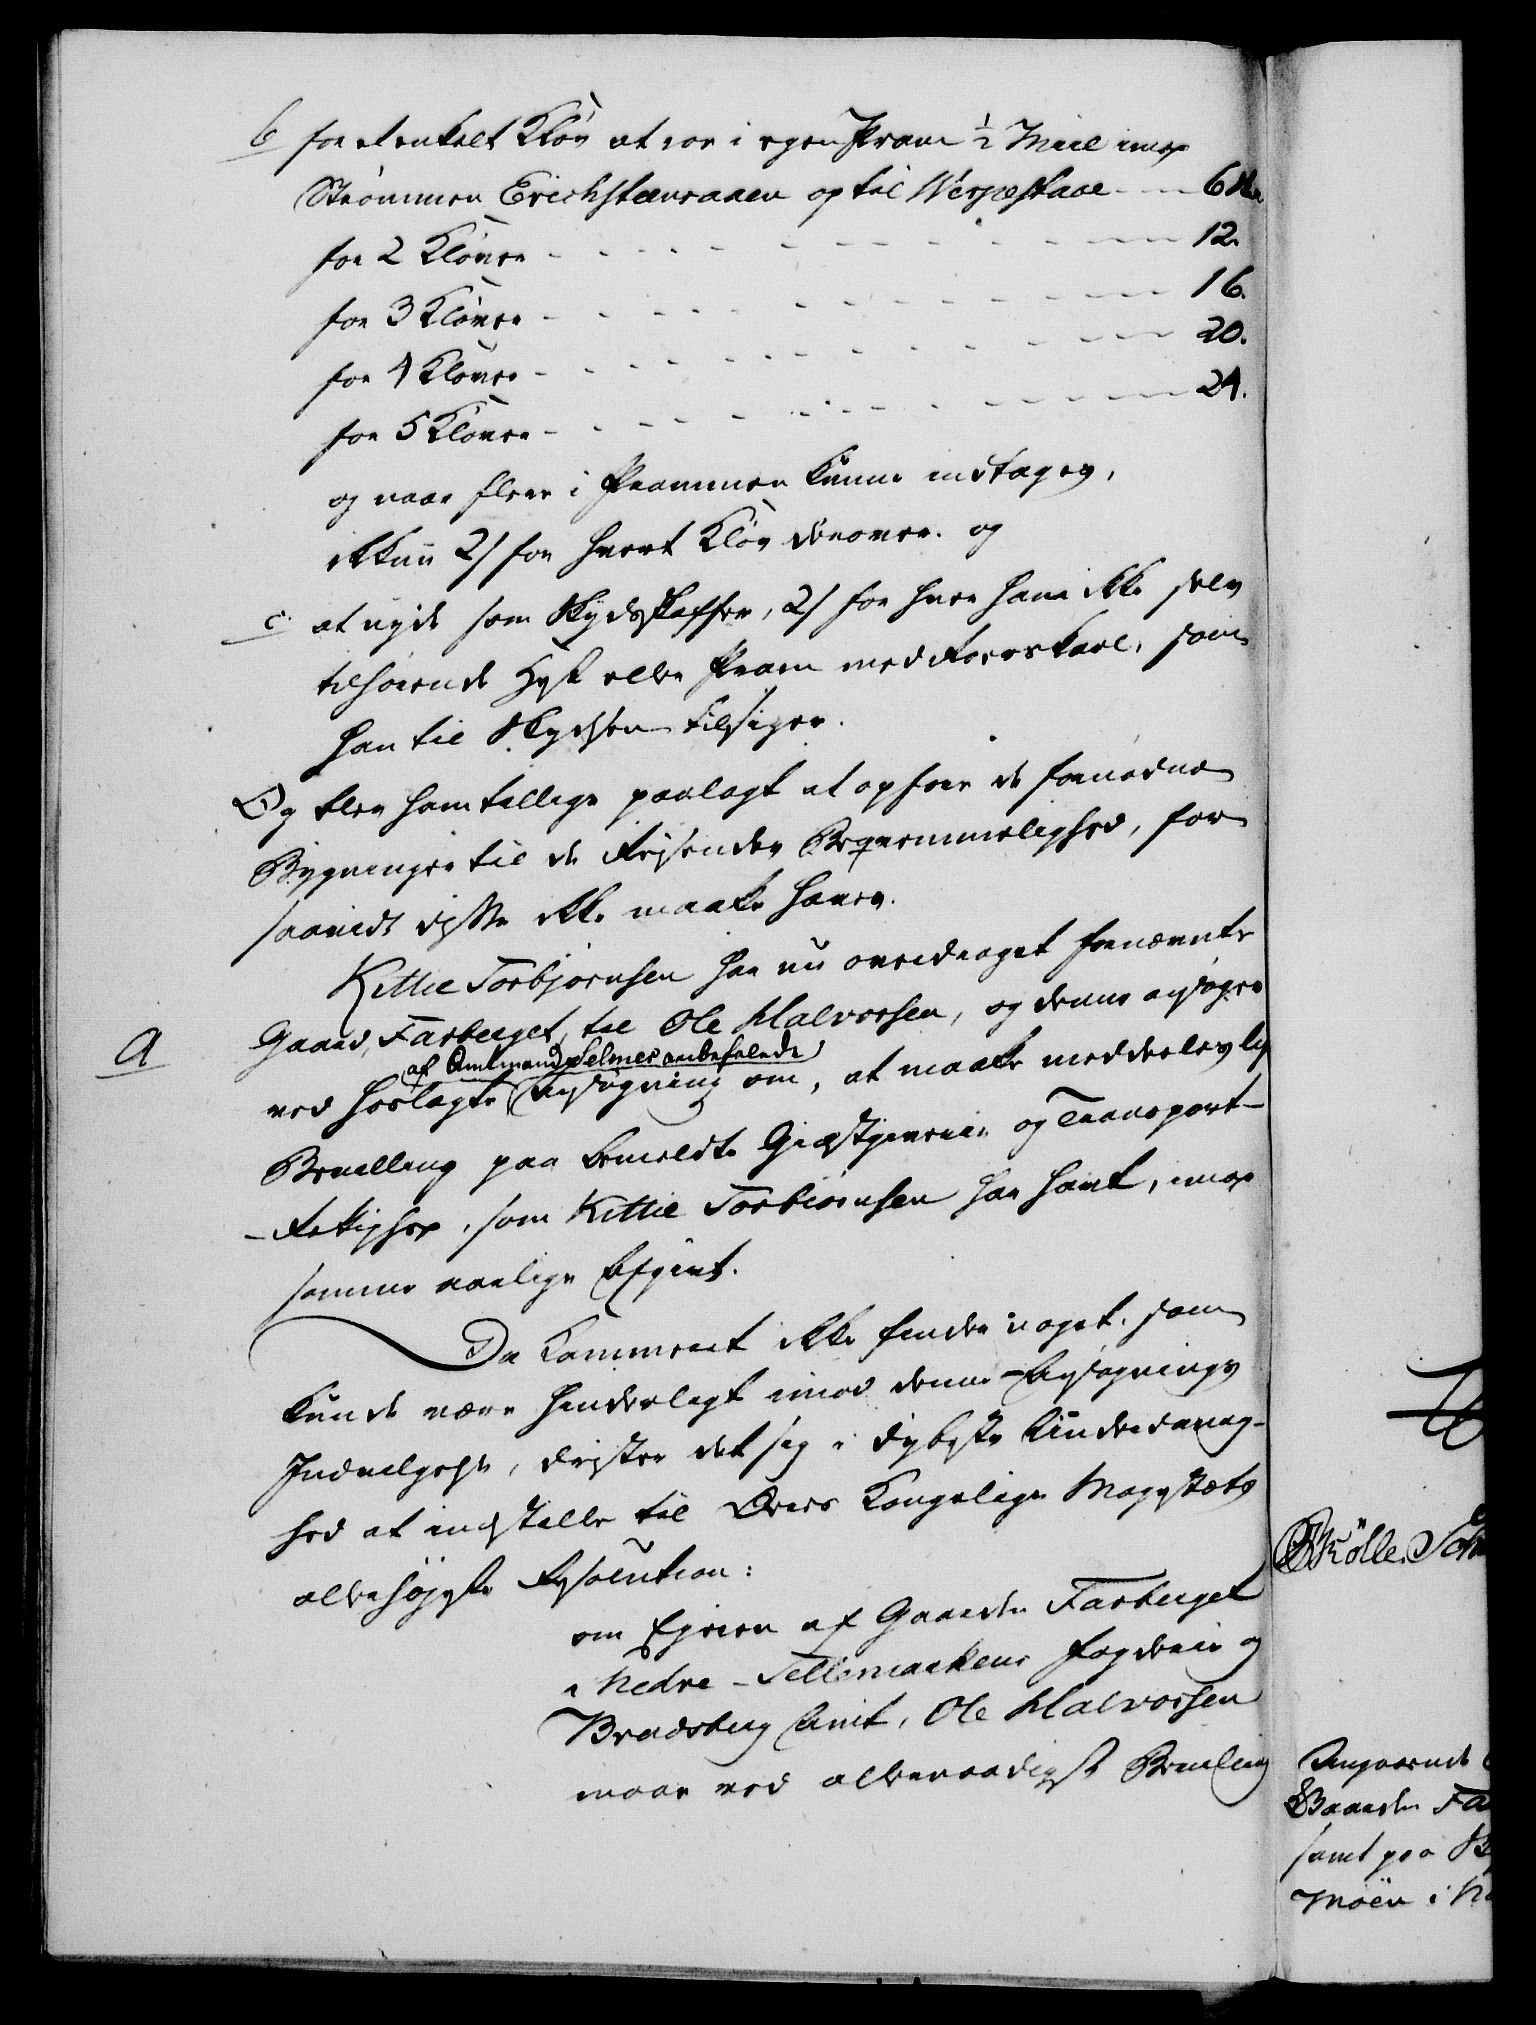 b for et enkelt Kløv at roe i egen Pram ½ Miil imod
Strømmen Erichsteensaaen op til Wespestaae - - 6 sk
for 2 Kløver - - - - - 12.
for 3 Kløver - - - - - 16.
for 4 Kløver - - - - - 20.
for 5 Kløver - - - - - 24.
og naar flere i Prammen kunne indtages,
ikkun 2 s for hvert Kløv derover. og
c. at nyde som Skydsskaffer, 2 s for hver ham ikke selv
tilhørende Hest eller Pram med Roerskarl, som
han til Skydsen tilsiger.
Og blev ham tillige paalagt at opføre de fornødne
Bygninger til de Reisendes Beqvemmelighed, for
saavidt disse ikke maatte haves.
Kittil Torbjørnsen har nu overdraget fornævnte
Gaard, Farberget, til Ole Halvorsen, og denne ansøger
af Amtmand Selmer anbefalede
a ved hoslagte Ansøgning om, at maatte meddeles ly
Bevilling paa bemeldte Giæstgiverie og Transport-
Rettighed, som Kittil Torbiørnsen har havt, imod
samme aarlige Afgivt.
Da Kammeret ikke finder noget, som
kunde være hinderligt imod denne Ansøgnings
Indvilgelse, drister det sig i dybeste Underdanig-
hed at indstille til Deres Kongelige Majestæts
allerhøjeste Resolution:
om Ejeren af Gaarden Farberget
i Nedre-Tellemarkens Fogderie og
Bradsberg Amt, Ole Halvorsen
maae ved allernaadigst Bevilling
Angaaende
Gaarden Fa
samt paa
Moen i N